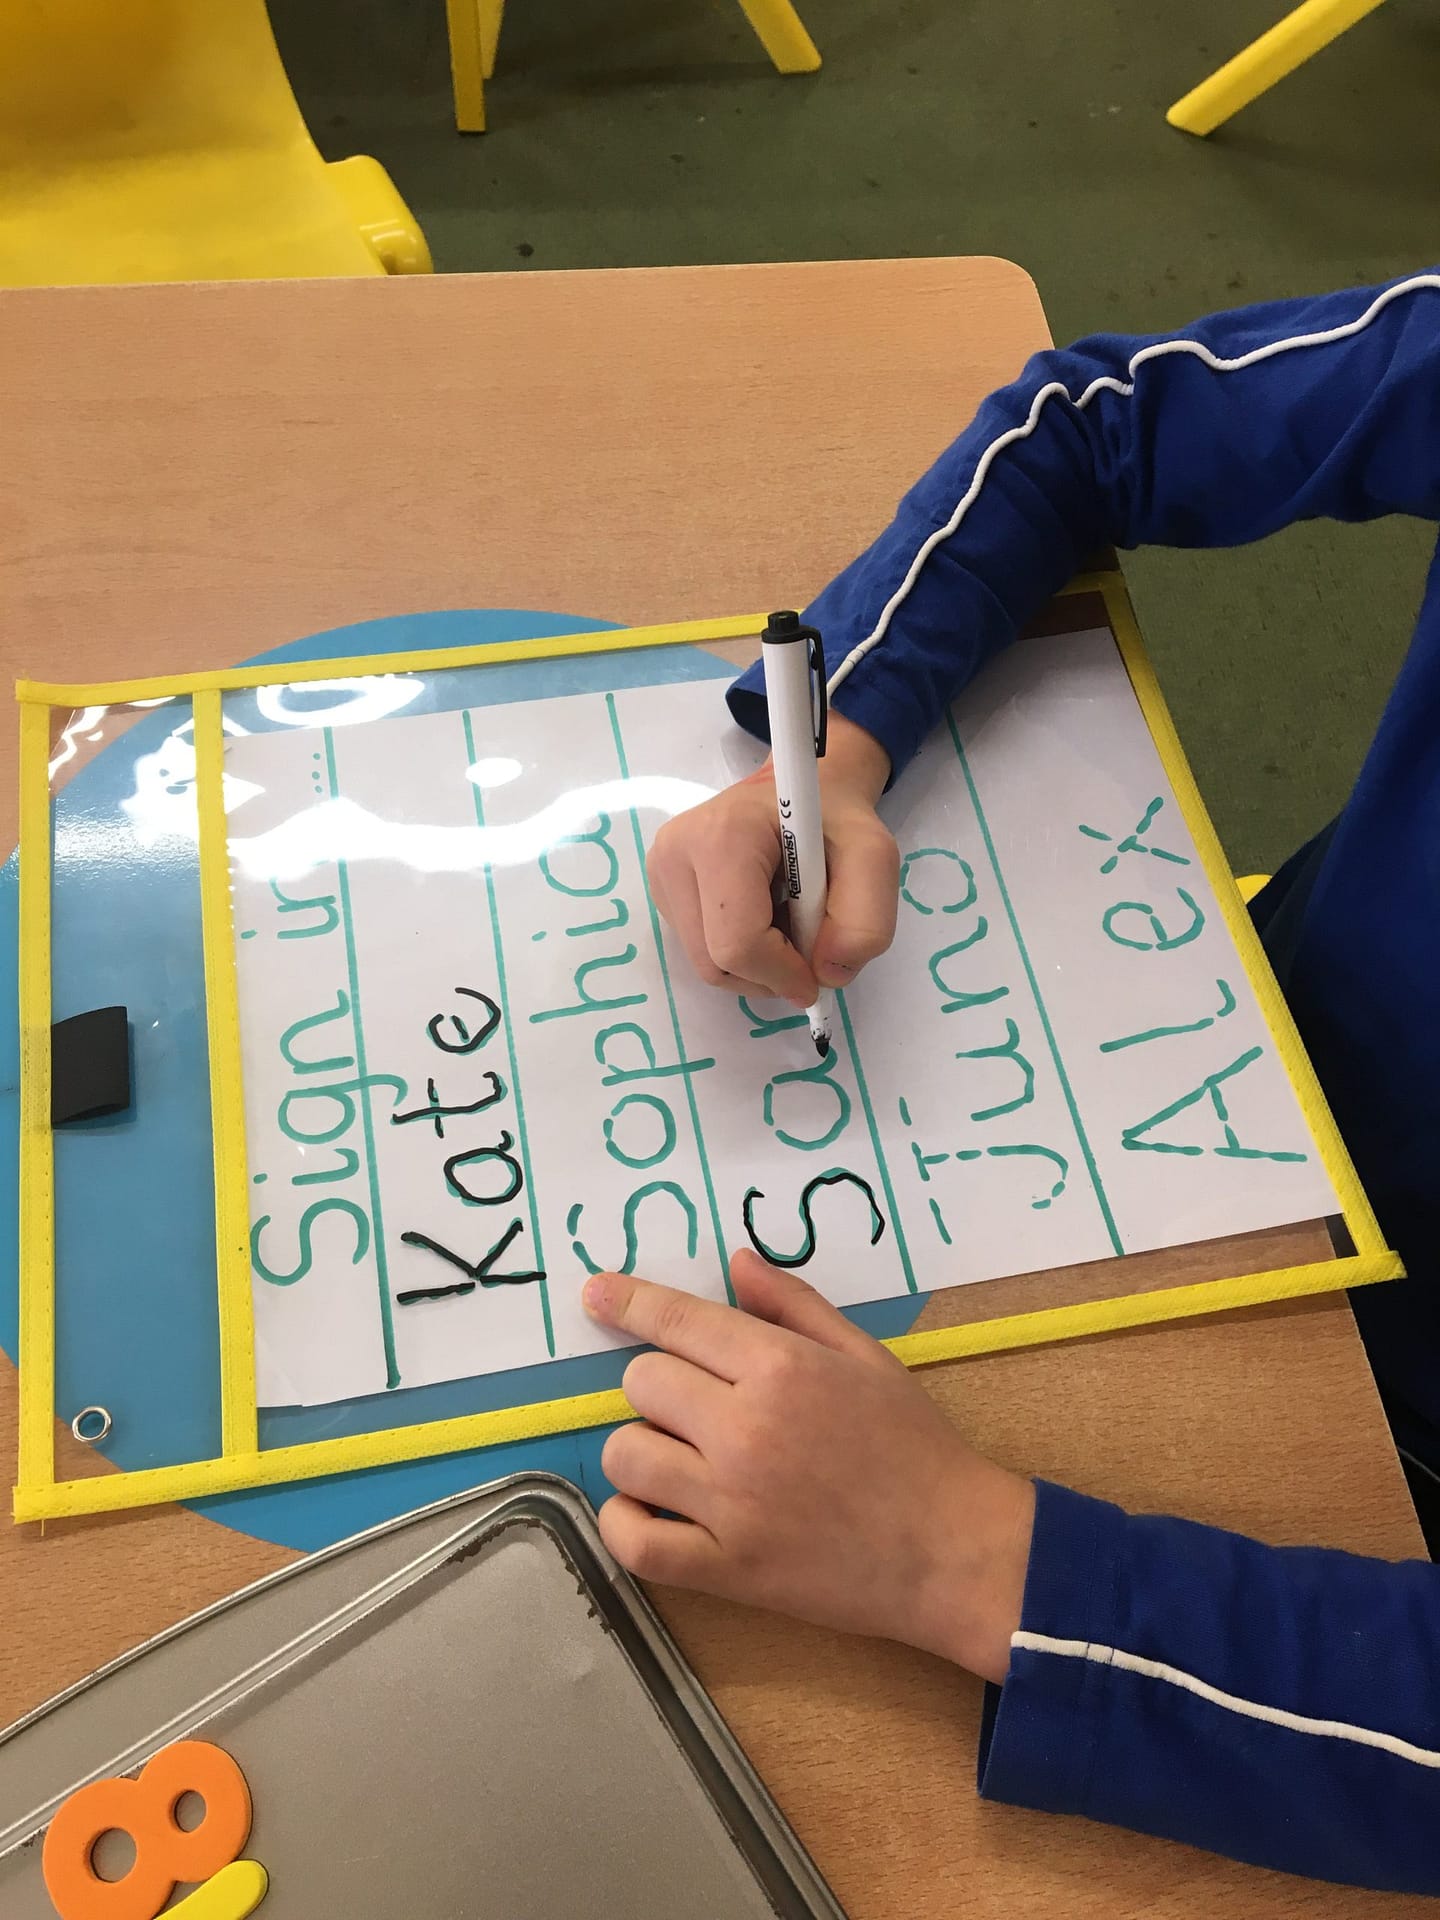 Sign in ...
Kate
Sophia
Sar
Juno
Alex
Rahmqvist CE
8